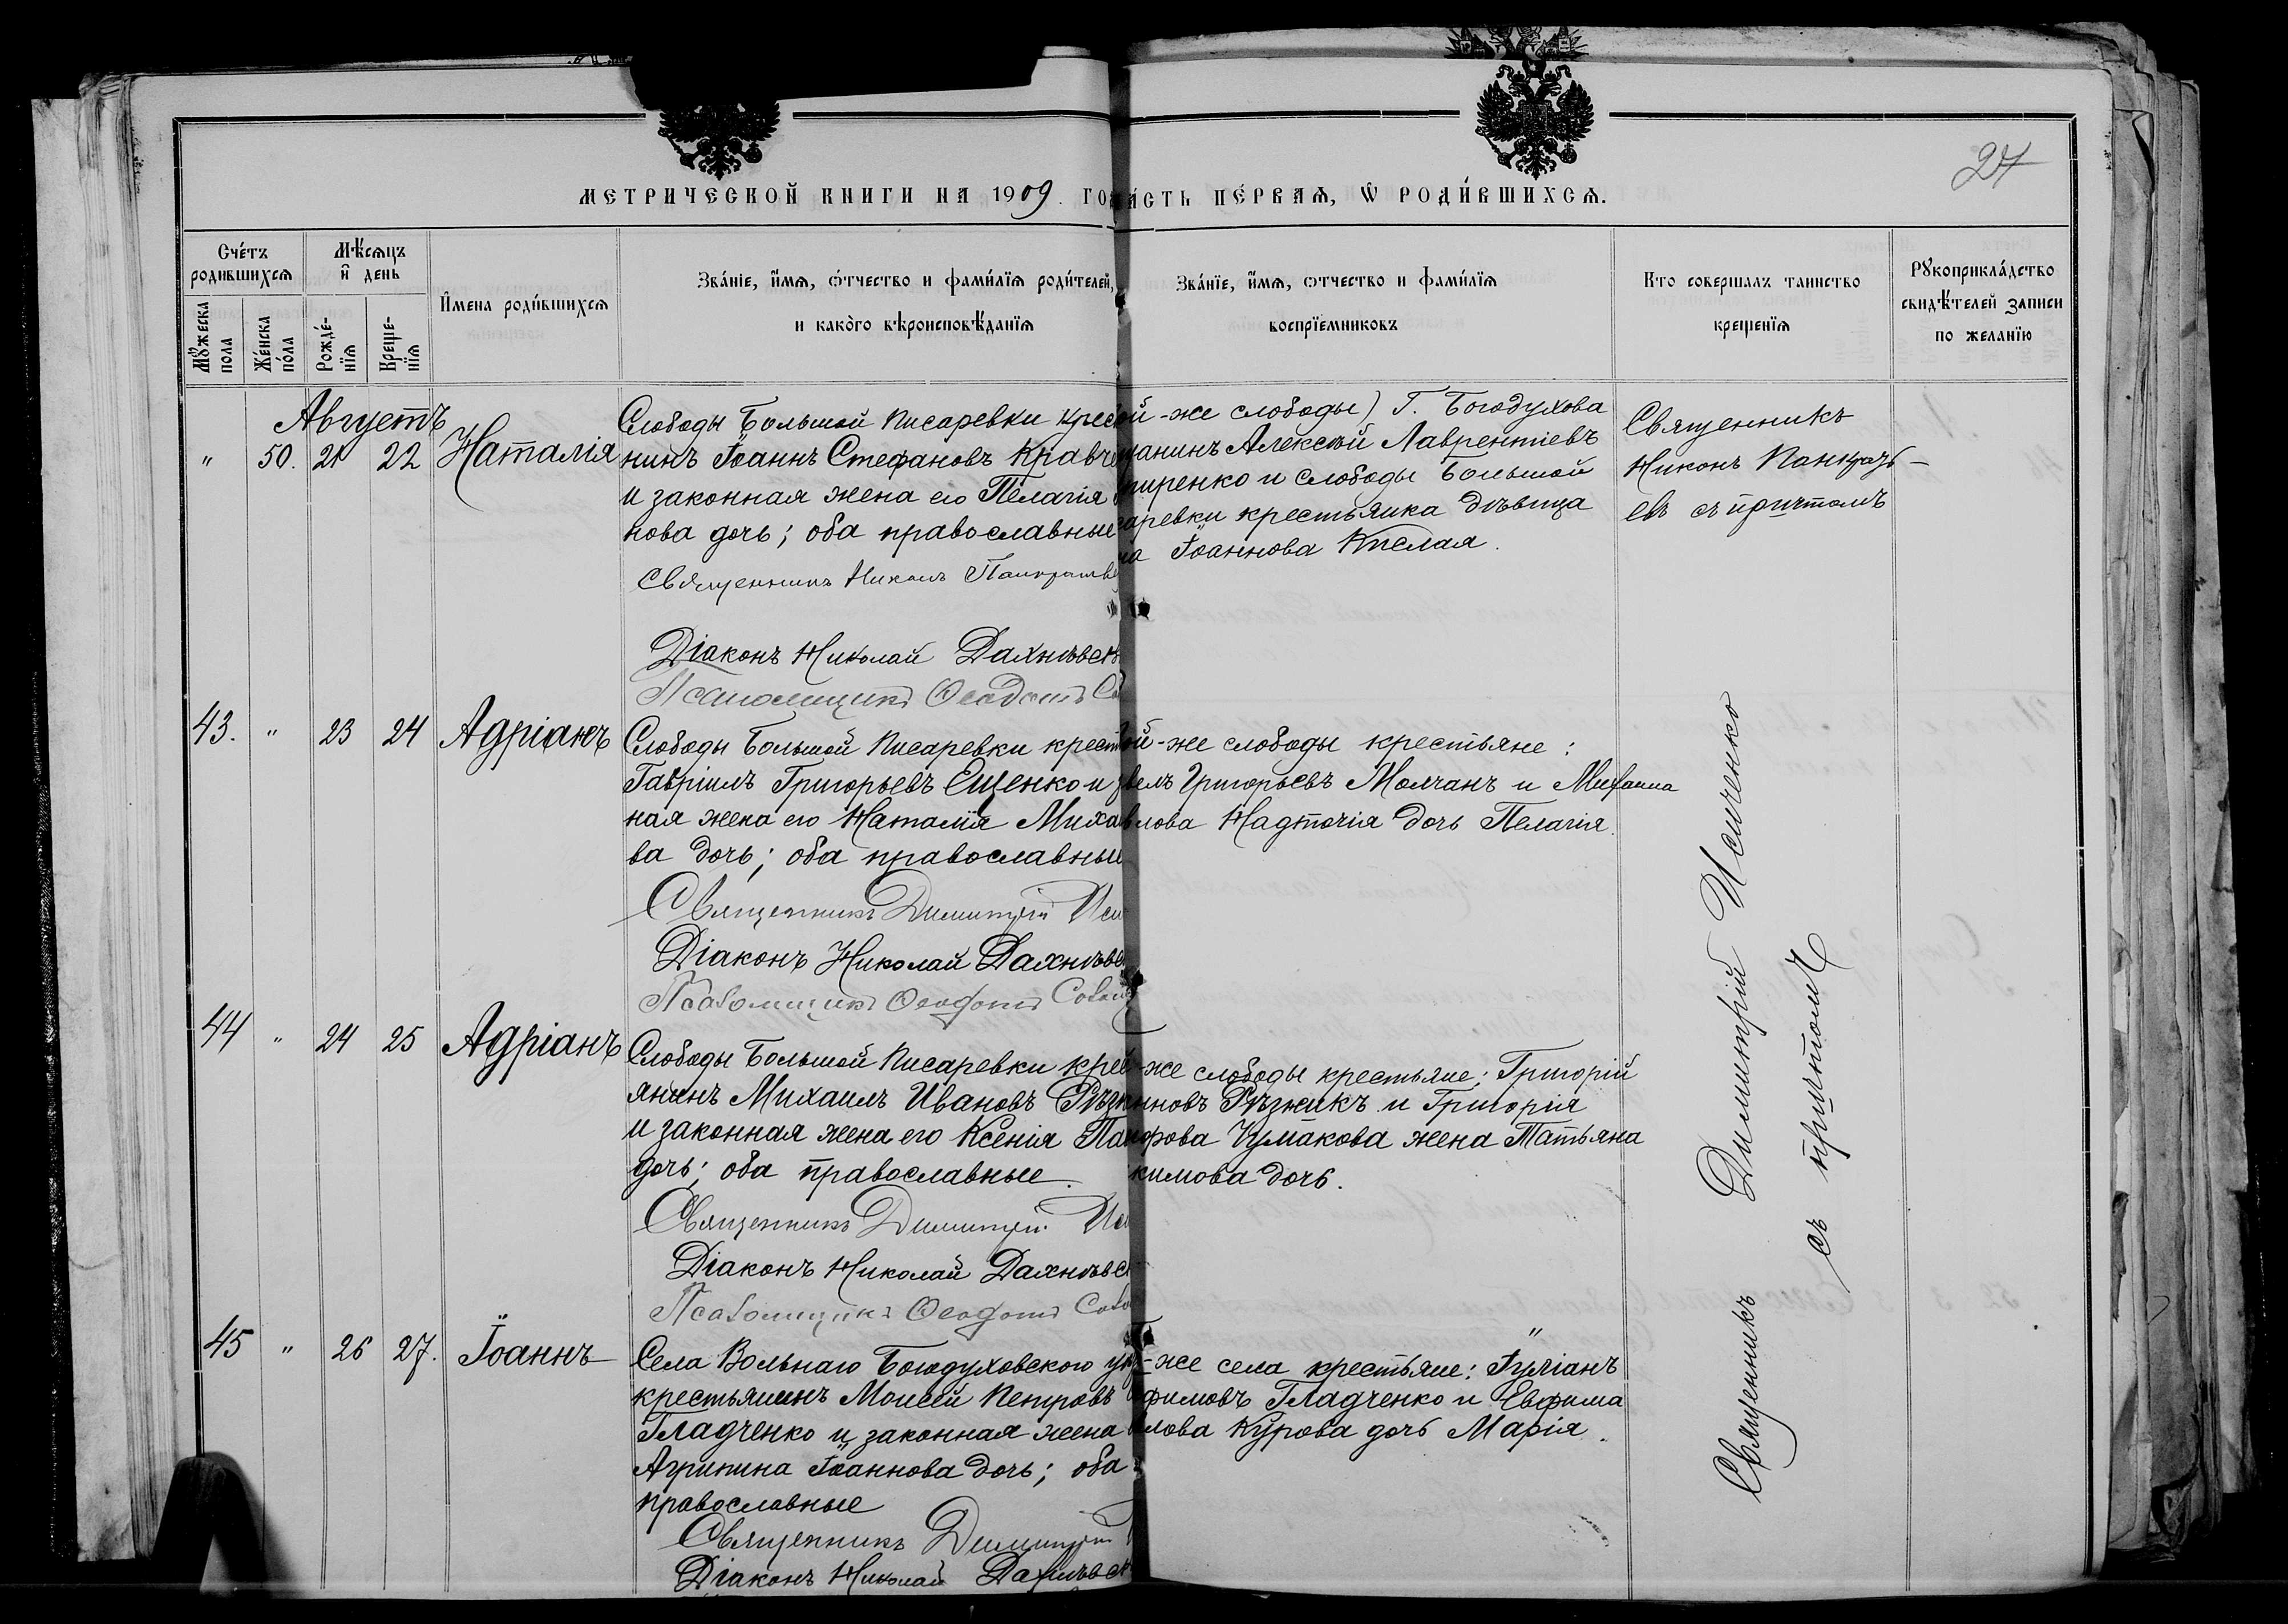 27
МЕТРИЧЕСКОЙ КНИГИ НА 1909. ГО
А́СТЬ ПЕ́РВАѦ, Ѿ РОДИ́ВШИХСѦ.
Сче́тъ родившихсѧ
Мѣ́сѧцъ и҆ день
И҆мена роди́вшихсѧ
Зва́нїе, и҆́мѧ, ѻ҆́тчество и фами́лїѧ роди́телей,
и како́гѡ вѣроисповѣ́данїѧ
Зва́нїе, и҆́мѧ, ѻтчество и фами́лїѧ
воспрїемниковъ
Кто совершалъ таинство
крещенїѧ
Рꙋкоприкла́дство
свидѣ́телей записи
по желанїю
Мꙋ́жеска пола
Же́нска по́ла
Рожде́-нїѧ
Креще-нїѧ
Августъ
" 50. 21 22 Наталія
Слободы Большой Писаревки крес
нинъ Іоаннъ Стефановъ Кравче
и законная жена его Пелагія
нова дочь; оба православные
Священникъ Никонъ Панкратьев
Діаконъ Николай Дахнѣвск
Псаломщикъ Ѳеодотъ Со
ой-же слободы) Г. Богодухова
щанинъ Алексѣй Лаврентіевъ
пиренко и слободы Большой
саревки крестьянка дѣвица
на Іоаннова Кислая.
Священникъ
Никонъ Панкрать-
евъ съ причтомъ
43. " 23 24 Адріанъ
Слободы Большой Писаревки крест
Гавріилъ Григорьевъ Ещенко и з
ная жена его Наталія Миха
ва дочь; оба православные
Священникъ Димитрій Иси
Діаконъ Николай Дахнѣвс
Псаломщикъ Ѳеодотъ Сово
ой-же слободы крестьяне:
велъ Григорьевъ Молчанъ и Михаила
влова Надточія дочь Пелагія.
44 " 24 25 Адріанъ
Слободы Большой Писаревки крес
янинъ Михаилъ Ивановъ Рѣзн
и законная жена его Ксенія Па
дочь; оба православные.
Священникъ Димитрій Иси
Діаконъ Николай Дахнѣвск
Псаломщикъ Ѳеодотъ Сово
-же слободы крестьяне: Григорій
нновъ Рѣзникъ и Григорія
фова Чумакова жена Татьяна
кимова дочь.
45 " 26 27. Іоаннъ
Села Вольнаго Богодуховского у
крестьянинъ Моисей Петровъ
Гладченко и законная жена
Агрипина Іоаннова дочь; оба
православные
Священникъ Димитрій
Діаконъ Николай Дахнѣвск
-же села крестьяне: Іуліанъ
фимовъ Гладченко и Евфима
лова Курова дочь Марія.
Священникъ Димитрій Исиченко
съ причтомъ